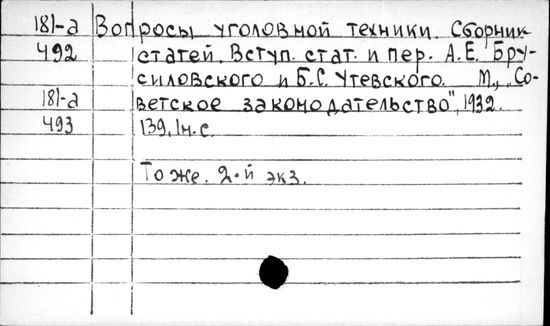 181-а Вопросы уголовной техники. Сборник
492 статей. Вступ. стат. и пер. А.Е. Бру-
силовского и Б.С. Утевского. М., „Со-
181-а ветское законодательство", 1932.
493 139, 1н. с.
То же. 2-й экз.